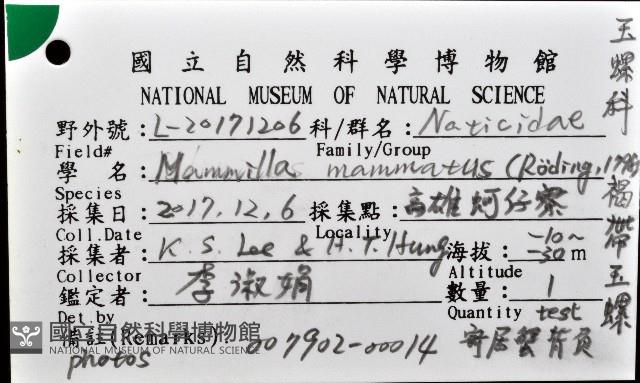 國立自然科學博物館
NATIONAL MUSEUM OF NATURAL SCIENCE
野外號：L-20171206 科/群名：Naticidae
Field# Family/Group
學 名：Mammillas mammatus (Röding, 1798)
Species
採集日：2017.12.6 採集點：高雄蚵仔寮
Coll.Date Locality
採集者：K.S. Lee & H.T. Hung 海拔：-10~-30m
Collector Altitude
鑑定者：李淑娟 數量：1
Det.by Quantity test
備註(Remarks)：007902-00014 寄居蟹背負
photos
玉螺科 褐帶玉螺
國立自然科學博物館
NATIONAL MUSEUM OF NATURAL SCIENCE